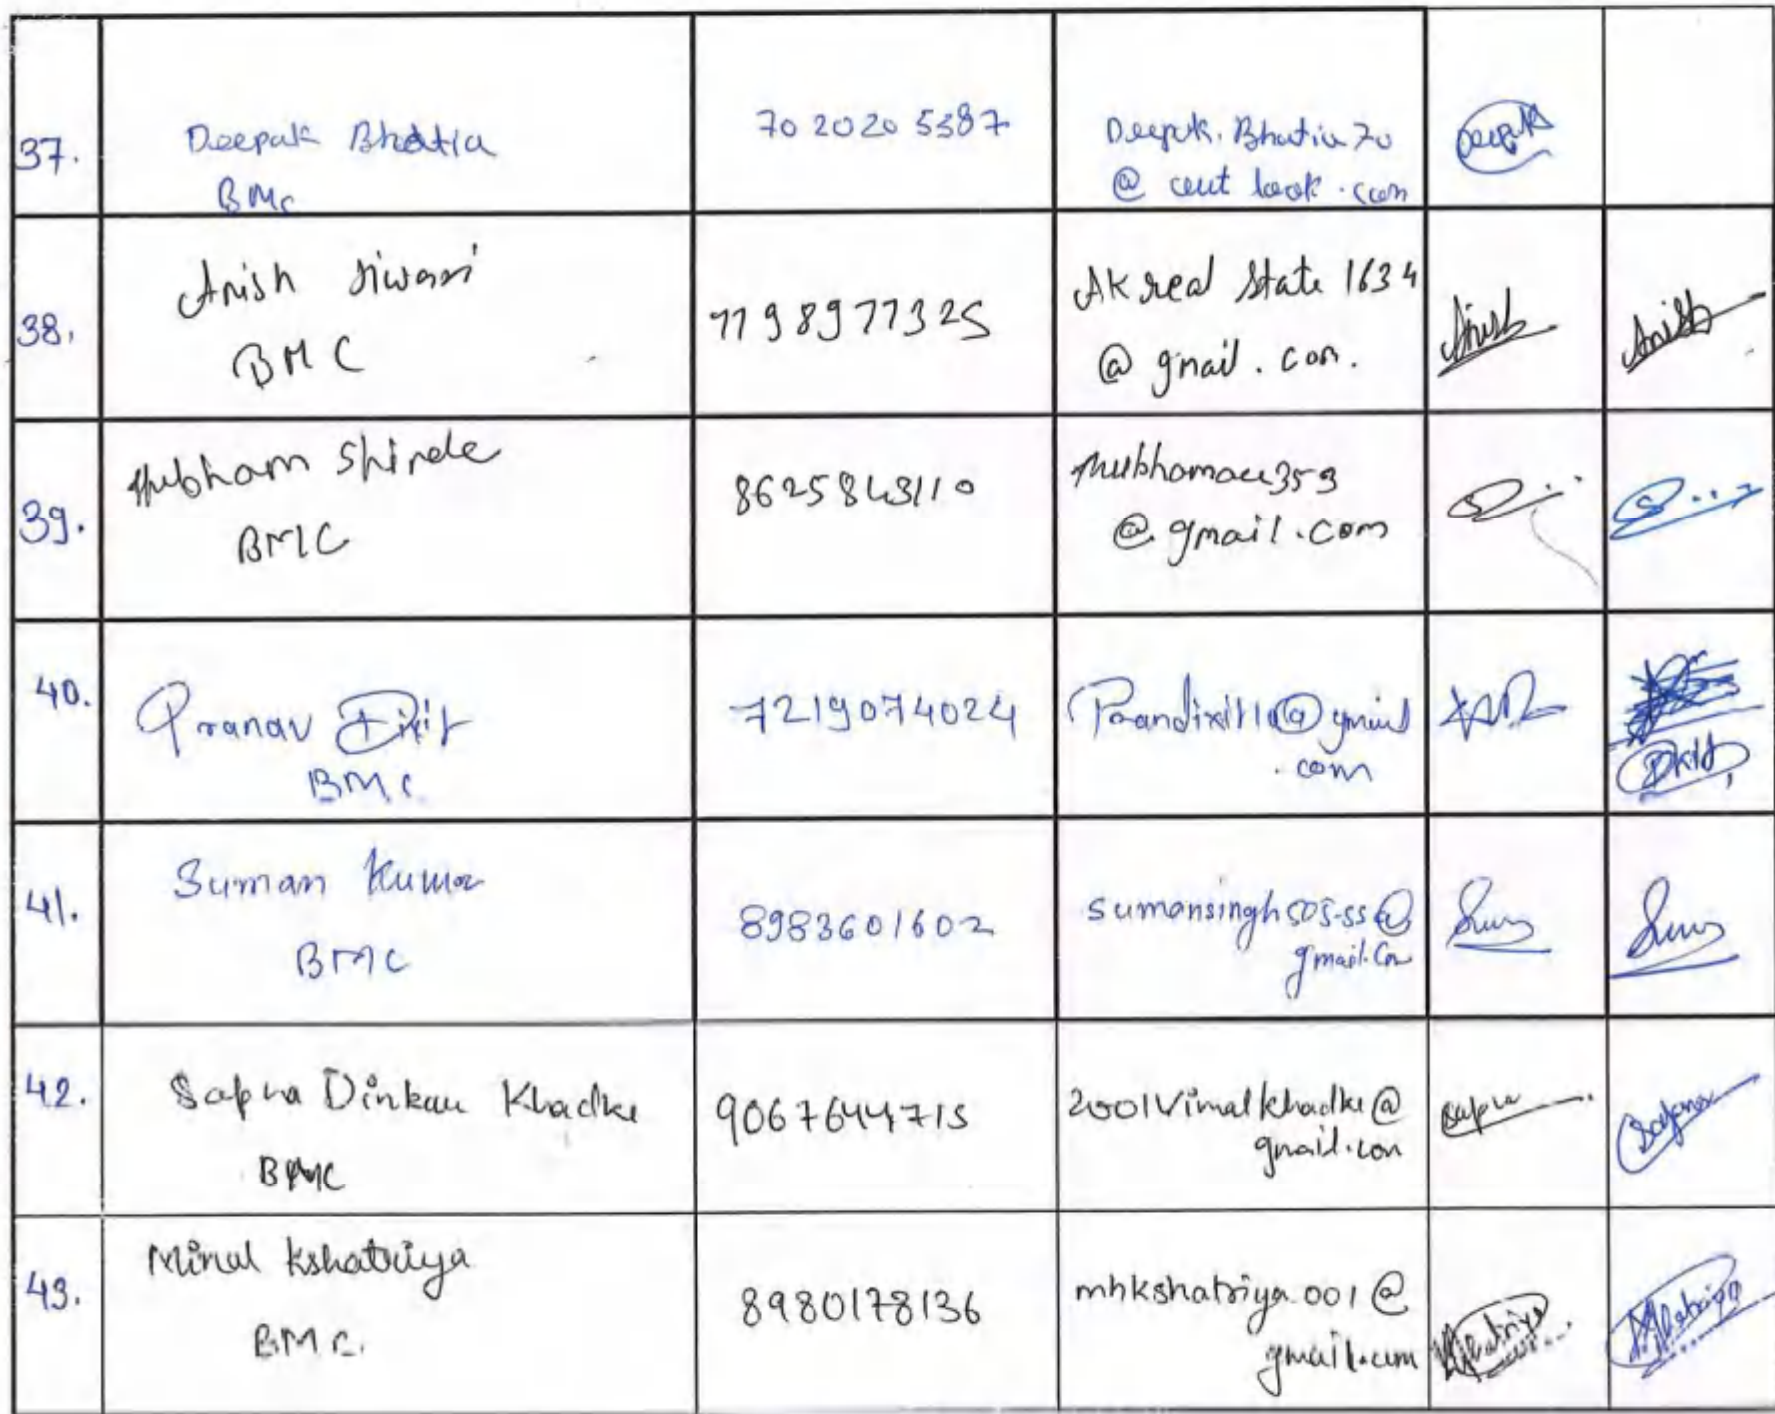 37.
Deepak Bhatia
BMC
70 2020 5387
Deepak.Bhatia 70
@ outlook.com
Deepak
38.
Anish Tiwari
BMC
7798977325
AK real state 1634
@ gmail.com.
Anish
Anish
39.
Shubham Shinde
BMC
8625843110
@gmail.com
40.
Pranav Dixit
BMC
7219074024
Prandixit11@gmail
.com
41.
Suman Kumar
BMC
8983601602
@
gmail.com
42.
Sapna Dinkar Khadke
BMC
9067644715
2001Vimalkhadke@
gmail.com
Sapna
Sapna
43.
Minal Kshatriya
BMC.
8980178136
mhkshatriya.001@
gmail.com
Kshatriya